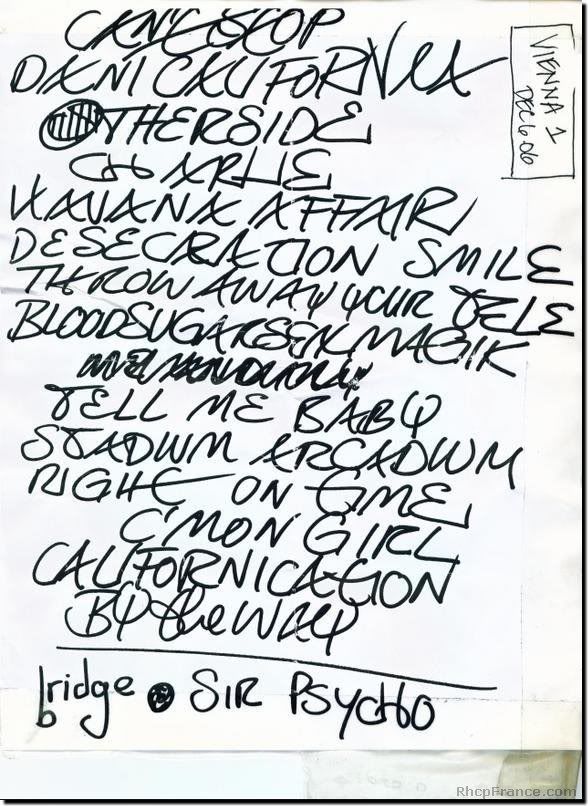 CAN'T STOP
DANI CALIFORNIA
VIENNA 1
DEC 6 06
OTHERSIDE
CHARLIE
HAVANA AFFAIR
DESECRATION SMILE
THROW AWAY YOUR TELE
BLOODSUGARSEXMAGIK
TELL ME BABY
STADIUM ARCADIUM
RIGHT ON TIME
C'MON GIRL
CALIFORNICATION
BY the WAY
bridge SIR PSYCHO
RhcpFrance.com